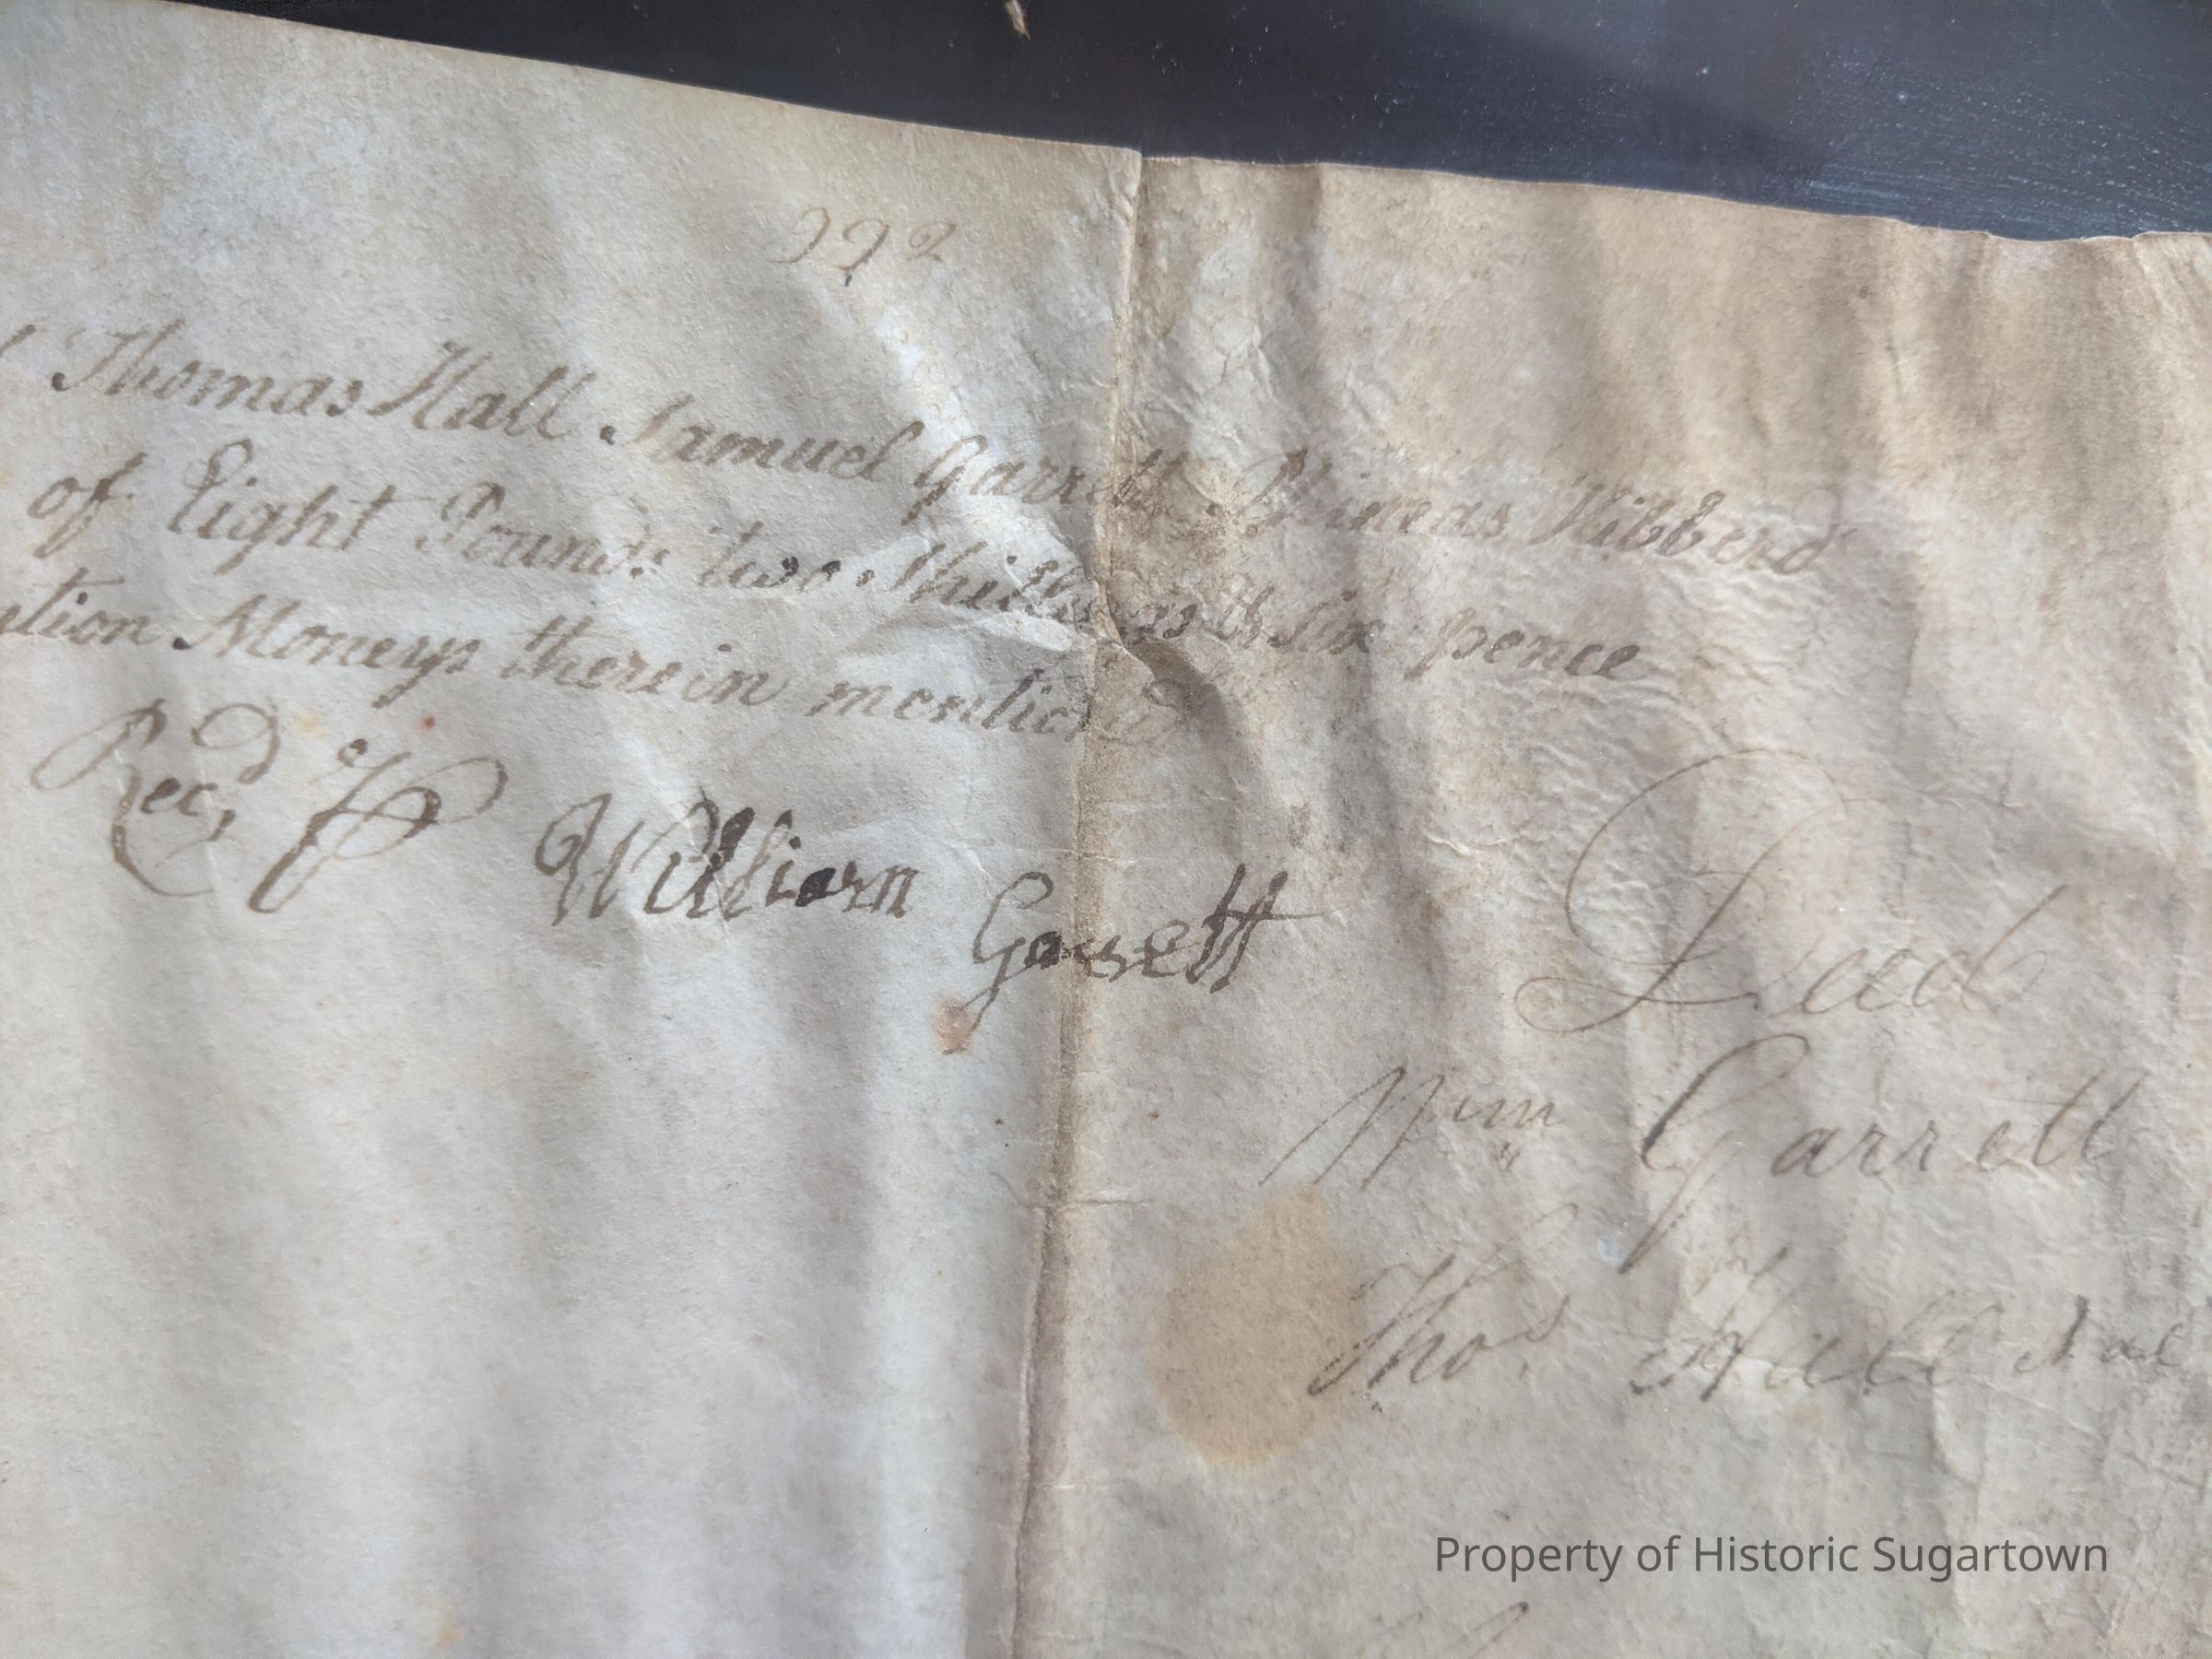 992
Thomas Hall Samuel Garrett Phineas Hibberd
of Eight Pounds two Shillings & six pence
ation Moneys therein mention'd
Rec'd
William Garrett
Deed
Wm Garrett
Thos Hall
Property of Historic Sugartown